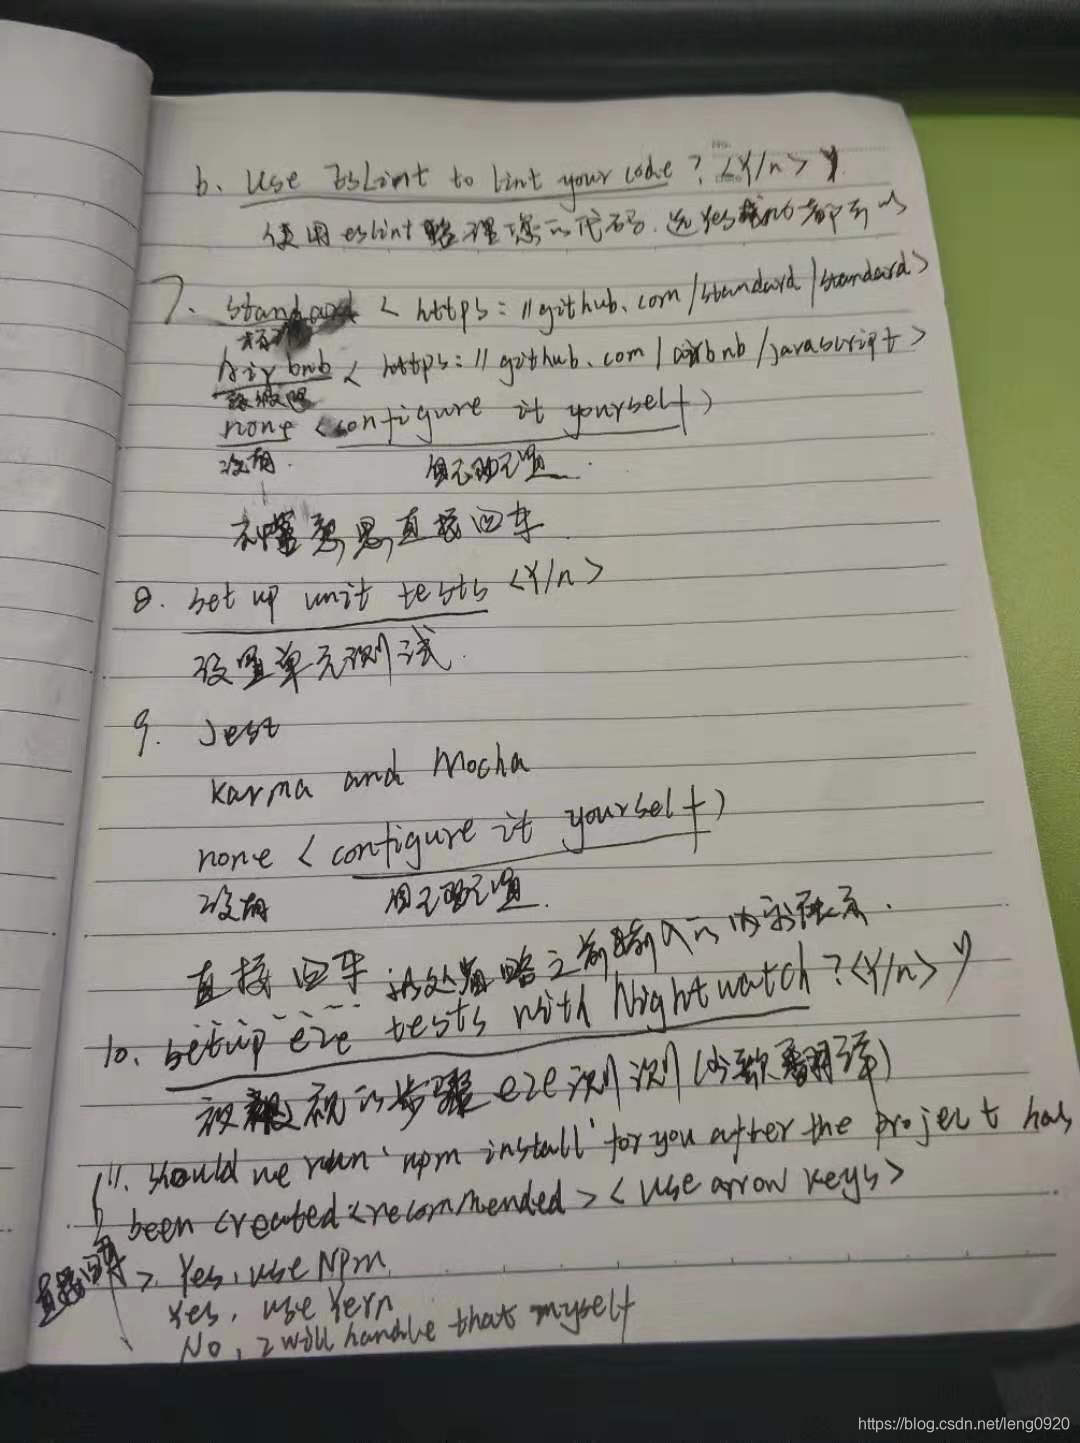 6. Use EsLint to lint your code? <Y/n> Y
使用eslint整理您的代码.选Yes或no都可以
7. Standard < https://github.com/standard/standard>
Airbnb < https://github.com/airbnb/javascript>
爱彼迎
none <configure it yourself)
没有. 自己配置.
直接回车
8. set up unit tests <Y/n>
设置单元测试.
9. Jest
Karma and Mocha
none < configure it yourself)
没有 自己配置.
直接回车 此处 略之前输入的内容
10. Setup e2e tests with Nightwatch? <Y/n> Y
的步骤e2e测测(少数翻译)
11. Should we run 'npm install' for you after the project has
been created<recommended> <use arrow keys>
直接回车 > Yes, use NPm
Yes, use Yern
No, I will handle that myself
https://blog.csdn.net/leng0920